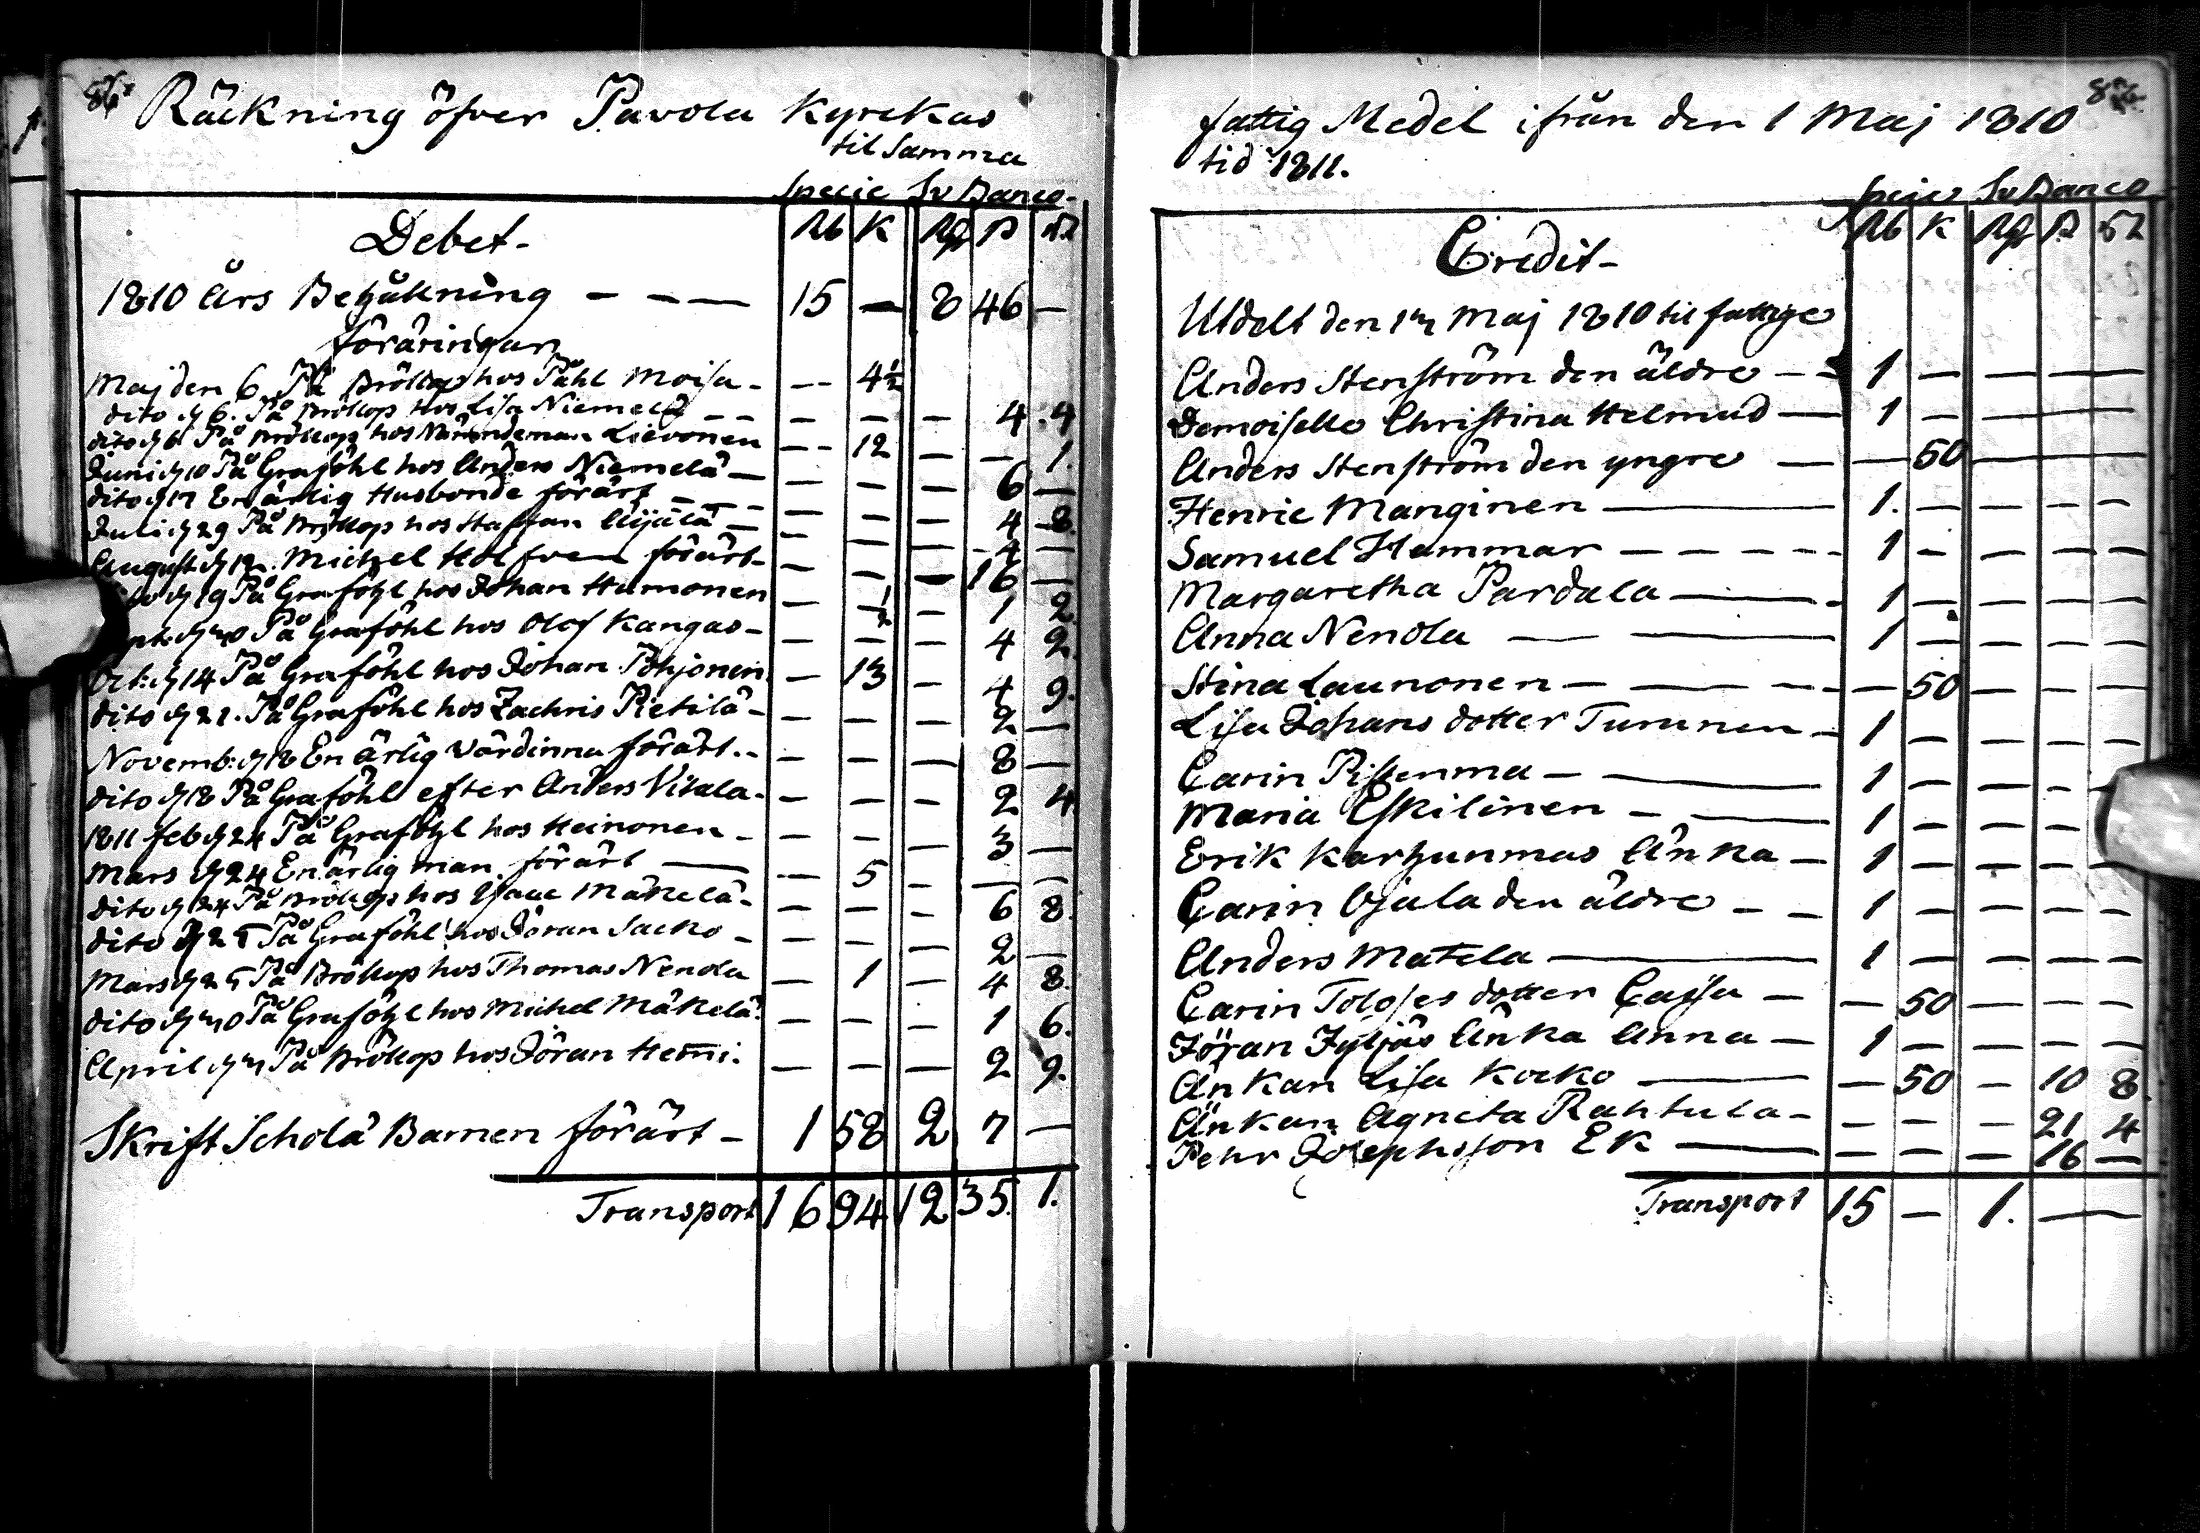 Räckning öfver Pavola Kyrckas
til Samma
Specie Sv Banco
Debet- Rb K Rg ß
1810 års Behållning - - - 15 - 8 46 -
föräringar
Maj den 6 På Bröllop hos Påhl Moisa - -- 4½
dito d 6. På Bröllop hos Lisa Niemelä - - - - - 4. 4
dito d 6 På Bröllop hos Nämndeman Lievonen -- 12 - - 1.
Juni d 10 På Graföhl hos Anders Niemelä - - - - 6 -
dito d 17 En ärlig Husbonde förärt - - - - - 4 8
Juli d 29 På Bröllop hos Staffan Alijälä - - - - 4 -
August d 12. Michel Holfven förärt - - - - 16 -
d 19 På Graföhl hos Johan Hamonen - ½ - 1 2
På Graföhl hos Olof Kangas - - - - 4 2.
Oct: d 14 På Graföhl hos Johan Pohjonen - 13 - 4 9.
dito d 21. På Graföhl hos Zachris Pietilä - - - - 2 -
Novemb: d 18 En ärlig Värdinna förärt.- - - - 8 -
dito d 18 På Graföhl efter Anders Vitala - - - - 2 4
1811 feb d 24 På Graföhl hos Heinonen - - - - 3 -
Mars d 24 En ärlig man förärt - - 5 - - -
dito d 24 På Bröllop hos Isaac Mäkelä - - - - 6 8.
dito d 25 På Graföhl hos Jöran Sacko - - - - 2 -
Mars d 25 På Bröllop hos Thomas Nenola - 1 - 4 8.
dito d 30 På Graföhl hos Michel Mäkelä. - - - 1 6.
April d På Bröllop hos Jöran Hemi. - - - 2 9.
Skrift Scholä Barnen förärt - 1 58 2 7 -
Transport 16 94 12 35. 1.
fattig Medel ifrån den 1 Maj 1810
tid 1811.
Specie Sv Banco
Credit- Rb K Rg ß
Utdelt den 1 Maj 1810 til fattige
Anders Stenström den äldre - - 1 - - - -
Demoiselle Christina Helmud - 1 - - - -
Anders Stenström den yngre - - 50 - - -
Henric Manginen - 1. - - - -
Samuel Hammar - - - - 1 - - - -
Margaretha Pardala - 1 - - - -
Anna Nenola - - 1 - - - -
Stina Launonen - - - - 50 - - -
Lisa Johans dotter Turunen - 1 - - - -
Carin Pistenma - - 1 - - - -
Maria Eskilinen - - 1 - - - -
Erik Karhunmas Änka - 1 - - - -
Carin Ojala den äldre - - 1 - - - -
Anders Matela - 1 - - - -
Carin dotter Caisa - - 50 - - -
Jöran Jyljäs Änka Anna - 1 - - - -
Änkan Lisa Kocko - - 50 - 10 8.
Änkan Agneta Rahtula - - - - 21 4
Pehr Josephsson Ek - - - - 16 -
Transport 15 - 1. -